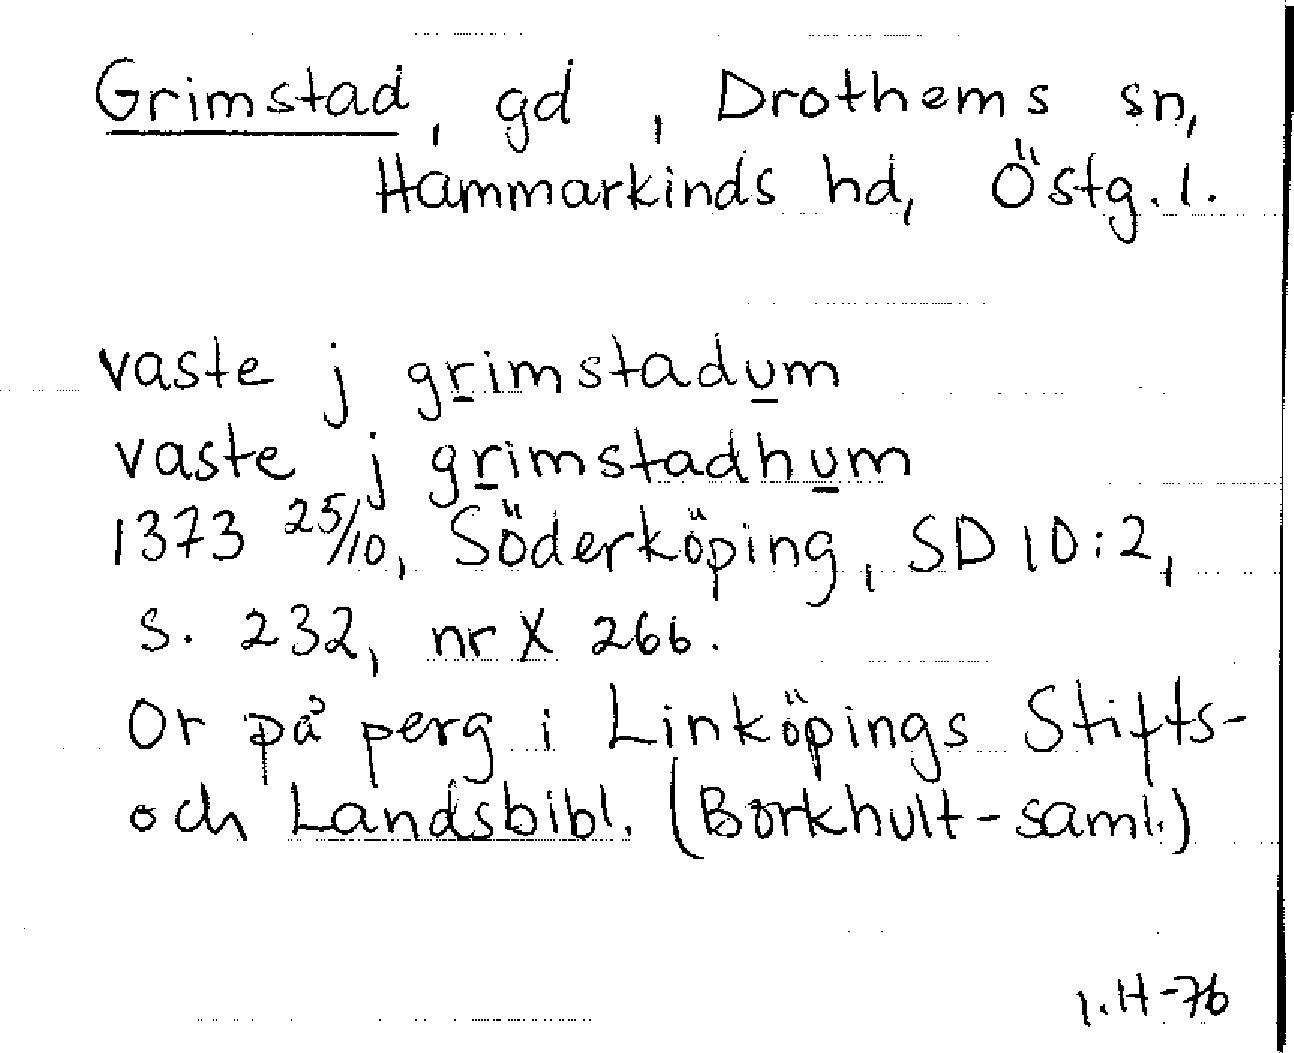 Grimstad, gd, Drothems sn,
Hammarkinds hd, Östg.l.
vaste j grimstadum
vaste j grimstadhum
1373 25/10, Söderköping, SD 10:2,
s. 232, nr X 266.
Or på perg i Linköpings Stifts-
och Landsbibl. (Borkhult-saml.)
I.H-76